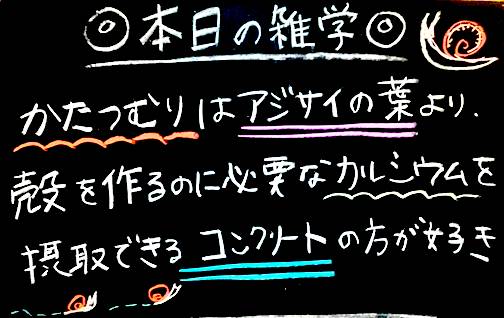 ◎本日の雑学◎
かたつむりはアジサイの葉より、
殻を作るのに必要なカルシウムを
摂取できるコンクリートの方が好き